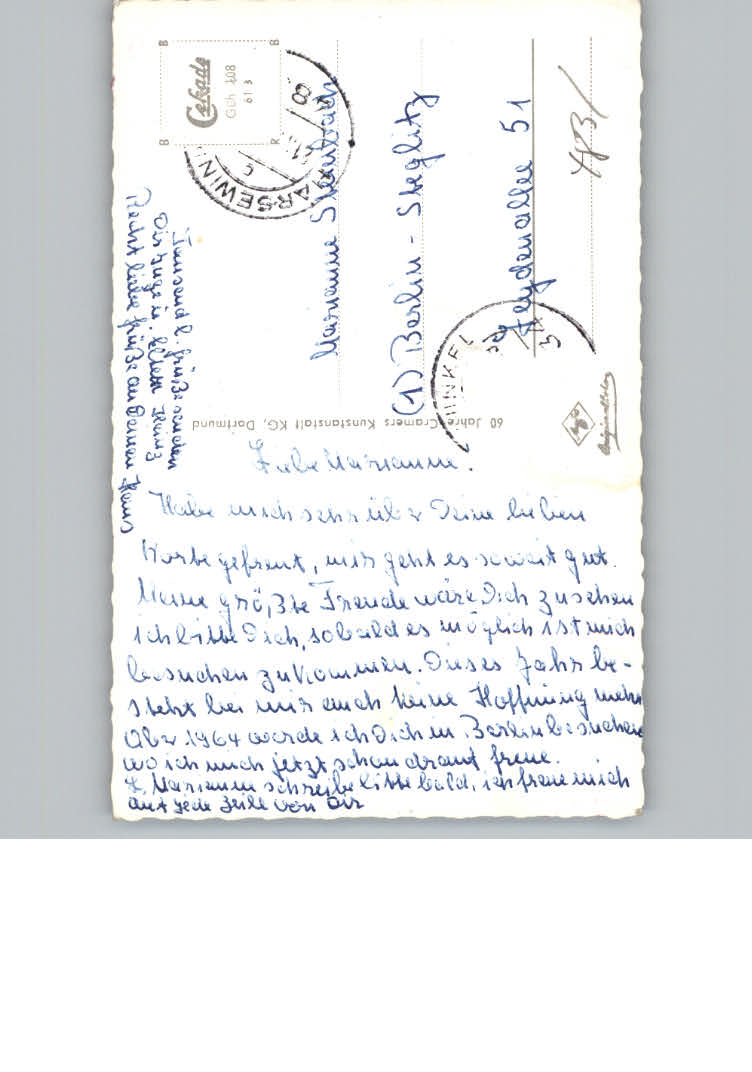 Liebe Marianne.
Habe mich sehr über Deine lieben
Worte gefreut, mir geht es soweit gut.
Meine größte Freude wäre Dich zu sehen
ich bitte Dich, sobald es möglich ist mich
besuchen zu kommen. Dieses Jahr be-
steht bei mir auch keine Hoffnung mehr
Aber 1964 werde ich Dich in Berlin besuchen
wo ich mich jetzt schon drauf freue.
L. Marianne schreibe bitte bald, ich freue mich
auf jede Zeile von Dir
Tausend l. Grüße senden
Dir Inge u. Eltern Heinz
Recht liebe Grüße an Deinen Hans
Marianne
(1) Berlin - Steglitz
Leydenallee 51
60 Jahre Cramers Kunstanstalt KG, Dortmund
Cekade
Gbh 108
61 3
B
B
B
R